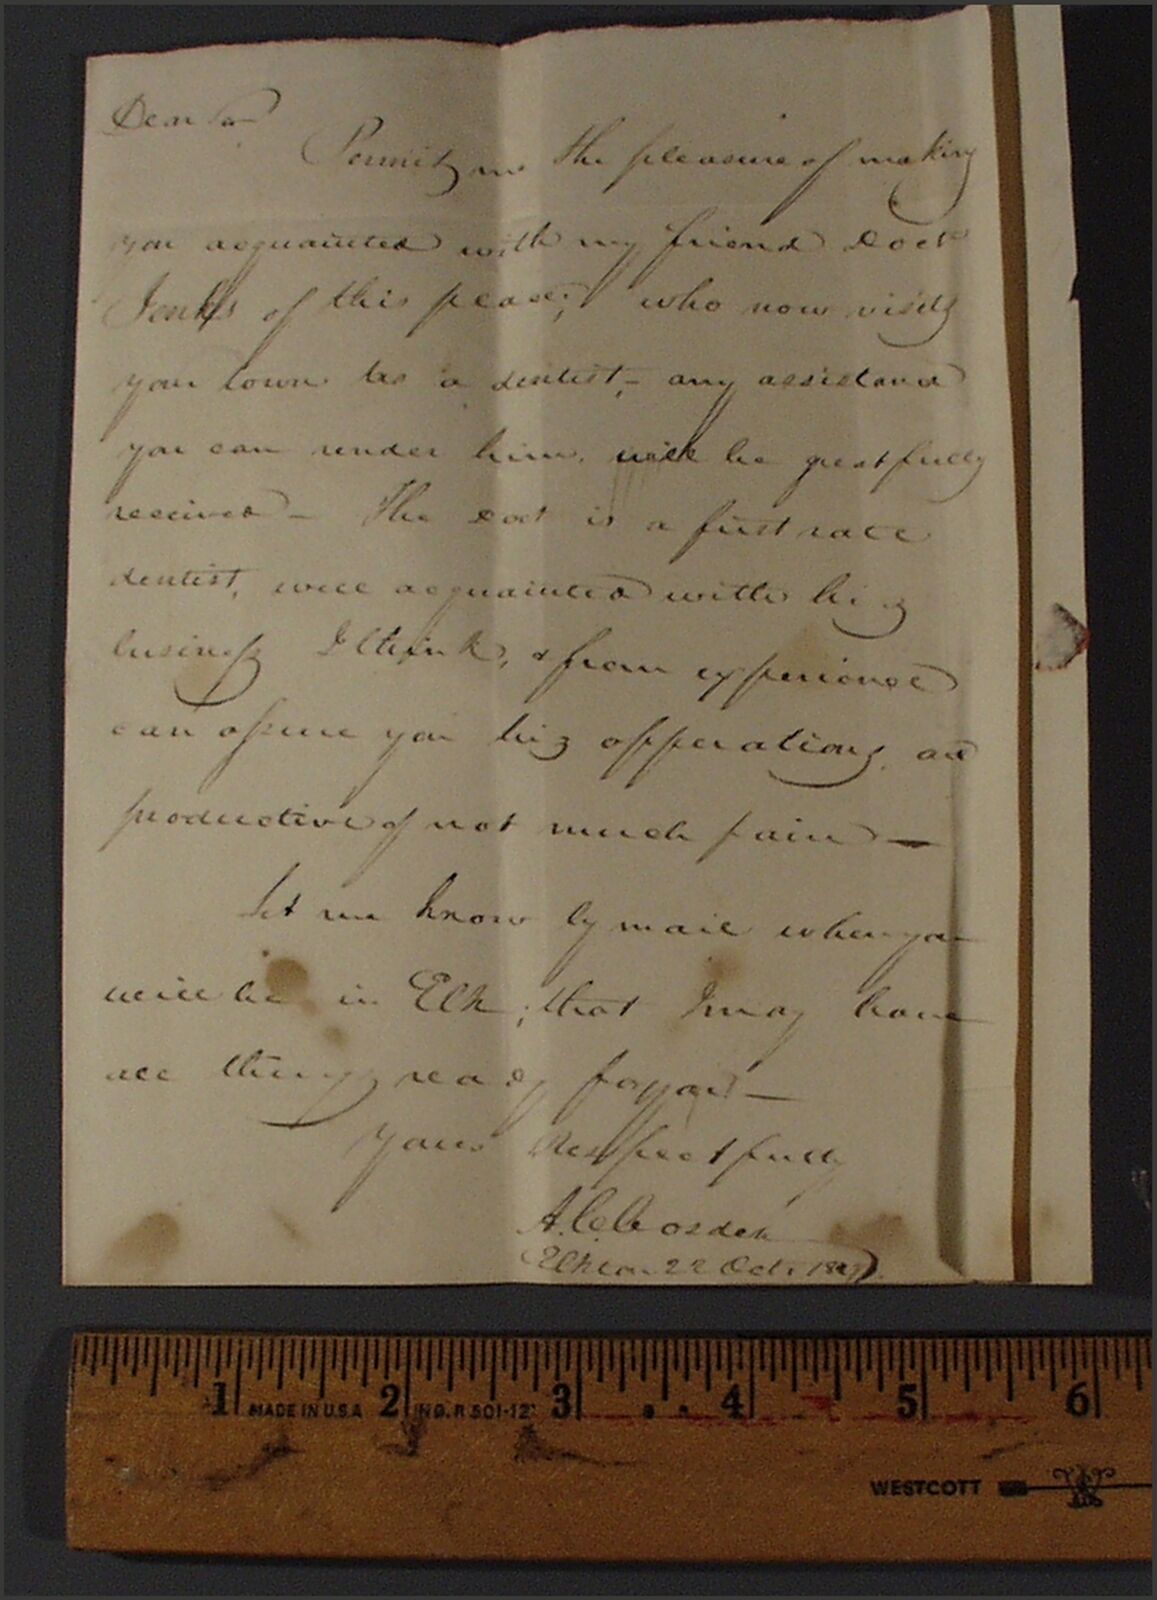 Dear Sir
Permit me the pleasure of making
you acquainted with my friend Doct
Jenks of this place, who now visits
your town as a dentist, – any assistance
you can render him, will be greatfully
received – The Doct is a first rate
dentist, well acquainted with his
business I think, & from experience
can assure you his opperations are
productive of not much pain —
let me know by mail when you
will be in Elk; that I may have
all things ready for you —
yours Respectfully
A. C.
Elkton 22 Oct.
1 2 3 4 5 6
MADE IN U.S.A. NO. R 501-12
WESTCOTT